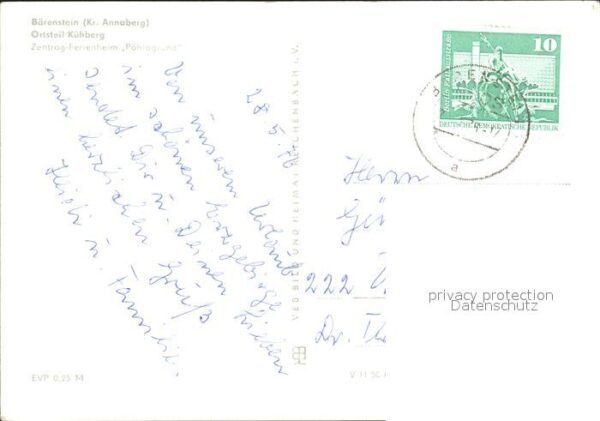 Bärenstein (Kr. Annaberg)
Ortsteil Kühberg
Zentrag-Ferienheim „Pöhlagrund"
28.5.76
Von unserem Urlaub
im schönen Erzgebirge
sendet Dir u. Deinen Lieben
einen herzlichen Gruß
Heidi u. Familie.
EVP 0,25 M
VEB BILD UND HEIMAT REICHENBACH i. V.
V 11 50
10
DEUTSCHE DEMOKRATISCHE REPUBLIK
a
Herrn
222
Dr.
privacy protection
Datenschutz